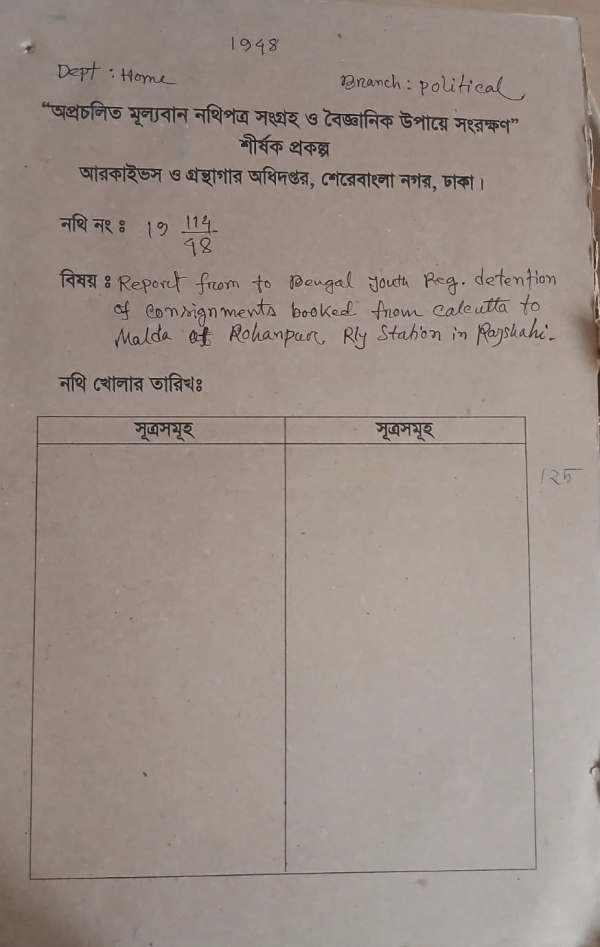 1948
Dept : Home Branch : political
“অপ্রচলিত মূল্যবান নথিপত্র সংগ্রহ ও বৈজ্ঞানিক উপায়ে সংরক্ষণ”
শীর্ষক প্রকল্প
আরকাইভস ও গ্রন্থাগার অধিদপ্তর, শেরেবাংলা নগর, ঢাকা।
নথি নং ঃ 19 114/48
বিষয় ঃ Report from to Bengal youth Reg. detention
of consignments booked from Calcutta to
Malda at Rohanpur, Rly Station in Rajshahi.
নথি খোলার তারিখঃ
সূত্রসমূহ সূত্রসমূহ
125